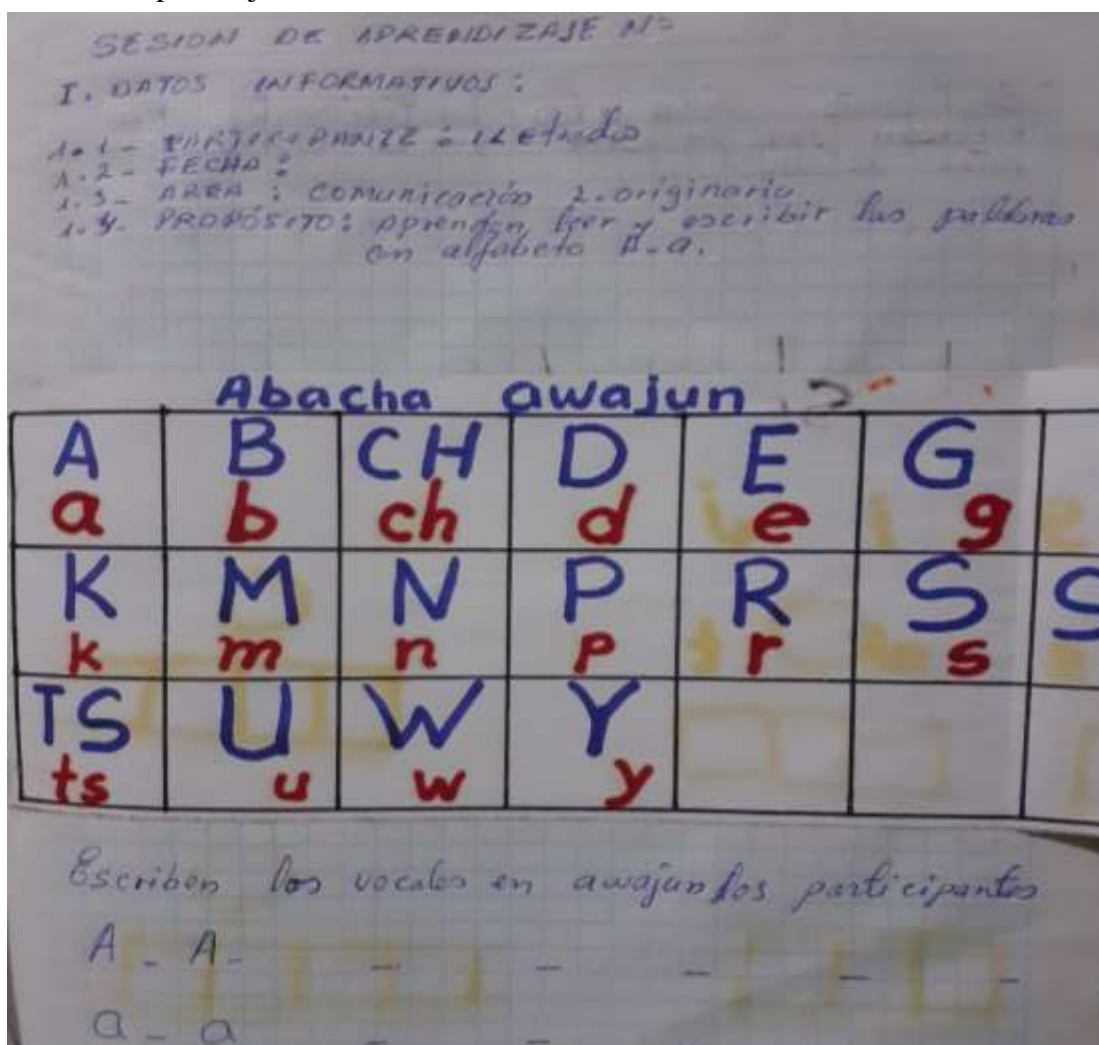 SESION DE APRENDIZAJE Nº
I. DATOS INFORMATIVOS:
1.1- PARTICIPANTE:
1.2- FECHA:
1.3- AREA: Comunicación 2. originario
1.4- PROPÓSITO: Aprenden leer y escribir las palabras
en alfabeto A-a.
Abacha awajun
A B CH D E G
a b ch d e g
K M N P R S S
k m n p r s
TS U W Y
ts u w y
Escriben los vocales en awajun los participantes
A - A - - - - - -
a - a - -